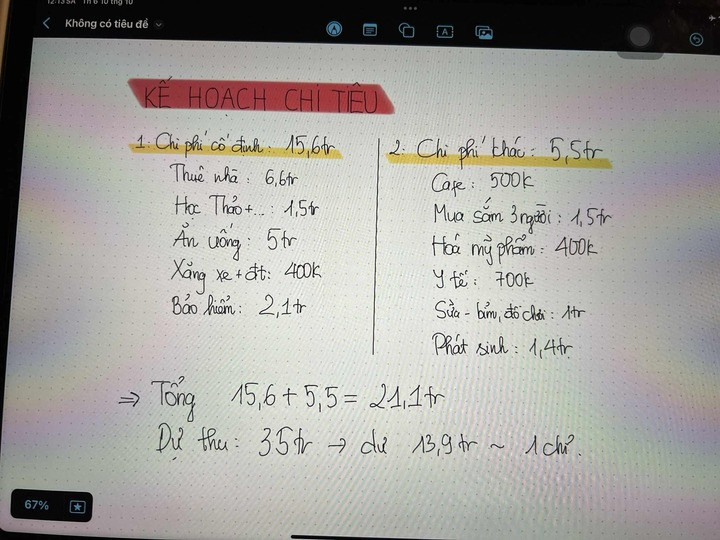 12:13 SA Th 6 10 thg 10
Không có tiêu đề
KẾ HOẠCH CHI TIÊU
1: Chi phí cố định: 15,6tr
Thuê nhà: 6,6tr
Học Thảo+...: 1,5tr
Ăn uống: 5tr
Xăng xe+đt: 400k
Bảo hiểm: 2,1tr
2: Chi phí khác: 5,5tr
Cafe: 500k
Mua sắm 3 người: 1,5tr
Hoá mỹ phẩm: 400k
Y tế: 700k
Sữa - bỉm, đồ chơi: 1tr
Phát sinh: 1,4tr
⇒ Tổng 15,6 + 5,5 = 21,1tr
Dự thu: 35tr → dư 13,9tr ~ 1 chỉ.
67%